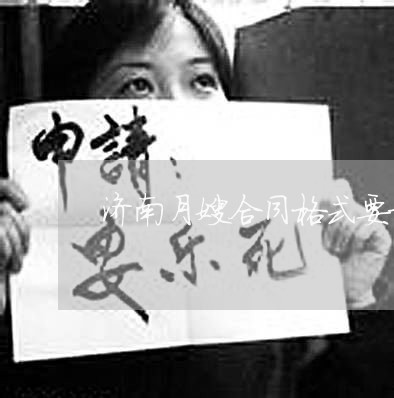 申請：
济南月嫂合同格式要
安乐死